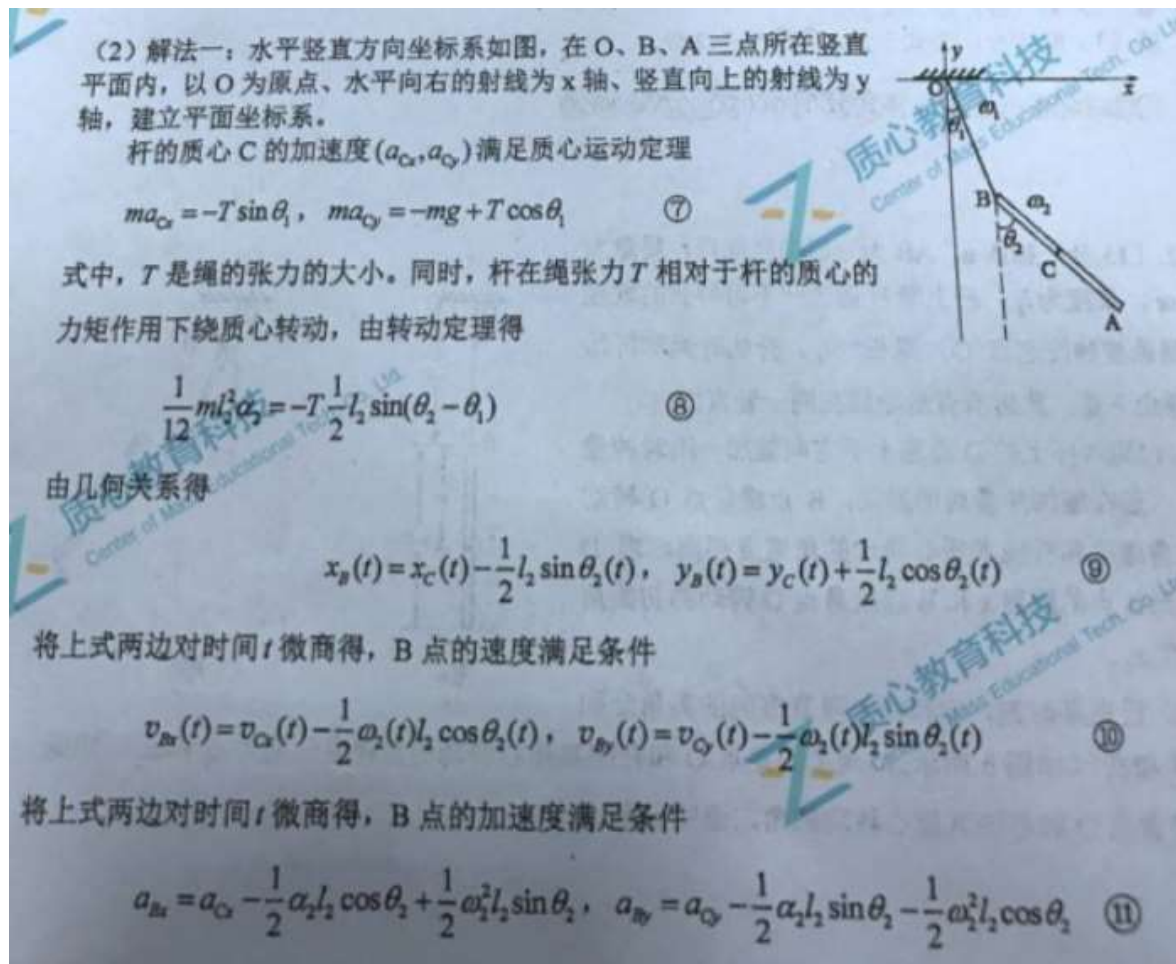 （2）解法一：水平竖直方向坐标系如图，在 O、B、A 三点所在竖直
平面内，以 O 为原点、水平向右的射线为 x 轴、竖直向上的射线为 y
轴，建立平面坐标系。
杆的质心 C 的加速度(a_{Cx},a_{Cy})满足质心运动定理
ma_{Cx}=-T sinθ₁，ma_{Cy}=-mg+T cosθ₁ ⑦
式中，T 是绳的张力的大小。同时，杆在绳张力 T 相对于杆的质心的
力矩作用下绕质心转动，由转动定理得
\frac{1}{12}ml₂²α₂=-T\frac{1}{2}l₂ sin(θ₂-θ₁) ⑧
由几何关系得
x_B(t)=x_C(t)-\frac{1}{2}l₂ sinθ₂(t)，y_B(t)=y_C(t)+\frac{1}{2}l₂ cosθ₂(t) ⑨
将上式两边对时间 t 微商得，B 点的速度满足条件
v_{Bx}(t)=v_{Cx}(t)-\frac{1}{2}ω₂(t)l₂ cosθ₂(t)，v_{By}(t)=v_{Cy}(t)-\frac{1}{2}ω₂(t)l₂ sinθ₂(t) ⑩
将上式两边对时间 t 微商得，B 点的加速度满足条件
a_{Bx}=a_{Cx}-\frac{1}{2}α₂l₂ cosθ₂+\frac{1}{2}ω₂²l₂ sinθ₂，a_{By}=a_{Cy}-\frac{1}{2}α₂l₂ sinθ₂-\frac{1}{2}ω₂²l₂ cosθ₂ ⑪
y
O
x
ω₁
θ₁
B
ω₂
θ₂
C
A
质心教育科技
Center of Mass Educational Tech. Co. Ltd.
质心教育科技
Center of Mass Educational Tech. Co. Ltd.
质心教育科技
Mass Educational Tech. Co. Ltd.